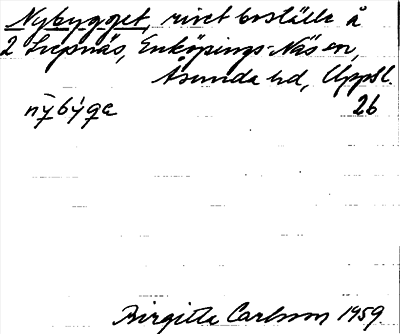 Nybygget, rivet boställe å
2 Liepnäs, Enköpings-Näs sn,
Åsunda hd, Uppl.
nȳbýga 26
Birgitta Carlsson 1959